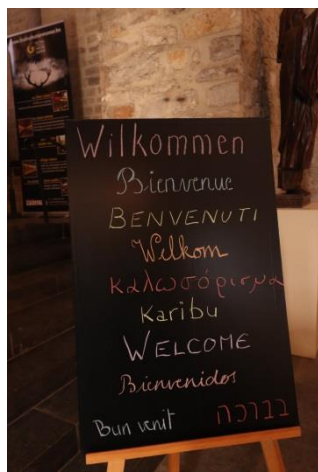 Wilkommen
Bienvenue
BENVENUTI
Welkom
Καλωσόρισμα
Karibu
WELCOME
Bienvenidos
Bun venit
בברכה